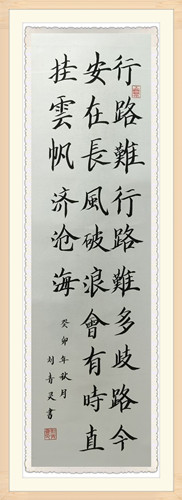 行路難行路難多歧路今
安在長風破浪會有時直
挂雲帆济沧海
癸卯年秋月
刘青灵書